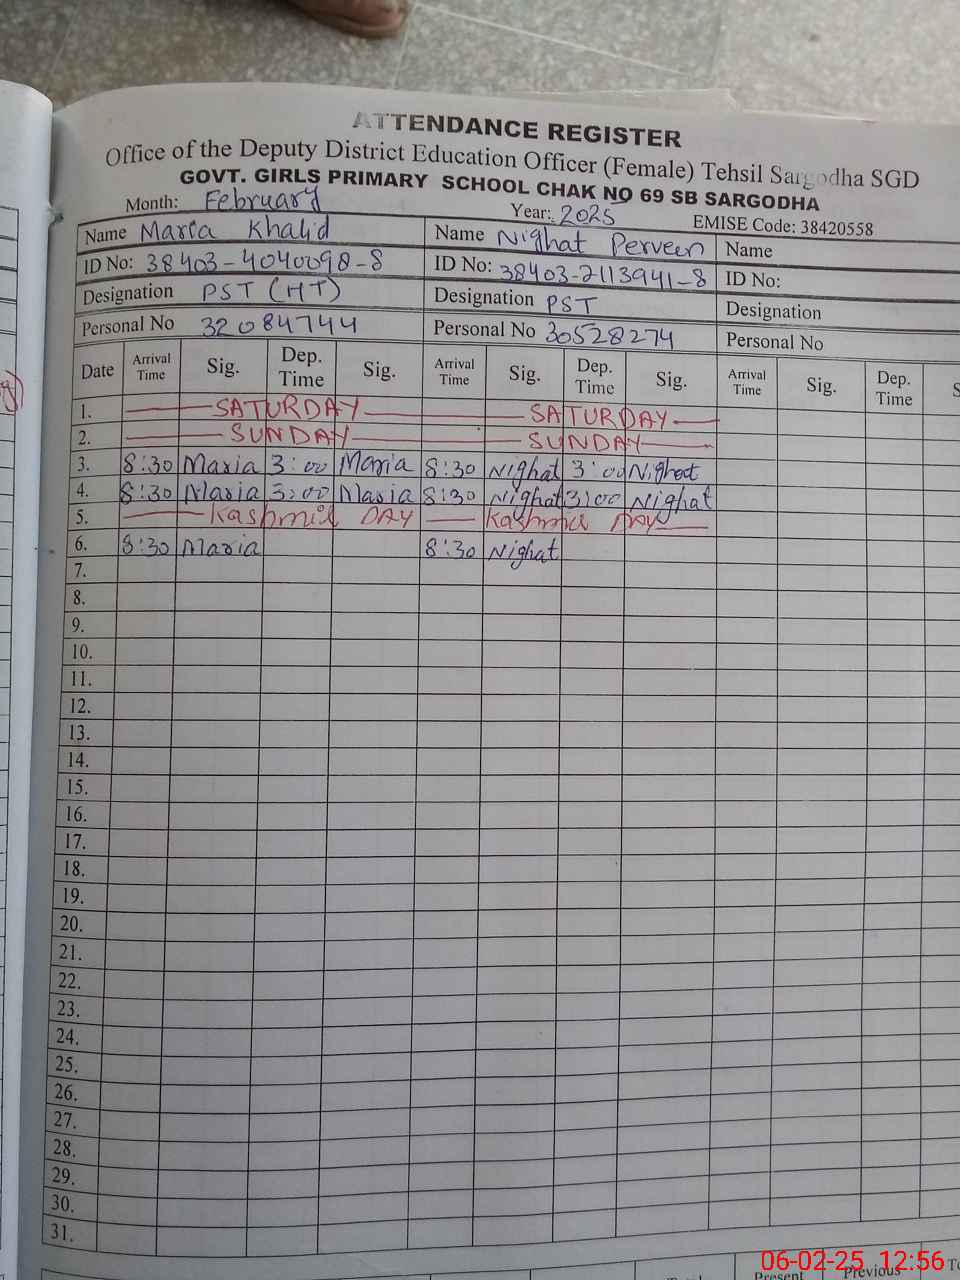 ATTENDANCE REGISTER
Office of the Deputy District Education Officer (Female) Tehsil Sargodha SGD
GOVT. GIRLS PRIMARY SCHOOL CHAK NO 69 SB SARGODHA
Month: February Year: 2025 EMISE Code: 38420558
Name Maria Khalid Name Nighat Perveen Name
ID No: 38403-4040098-8 ID No: 38403-2113941-8 ID No:
Designation PST (HT) Designation PST Designation
Personal No 32084744 Personal No 30528274 Personal No
Date Arrival Time Sig. Dep. Time Sig. Arrival Time Sig. Dep. Time Sig. Arrival Time Sig. Dep. Time S
1. SATURDAY SATURDAY
2. SUNDAY SUNDAY
3. 8:30 Maria 3:00 Maria 8:30 Nighat 3:00 Nighat
4. 8:30 Maria 3:00 Maria 8:30 Nighat 3:00 Nighat
5. Kashmir DAY Kashmir DAY
6. 8:30 Maria 8:30 Nighat
7.
8.
9.
10.
11.
12.
13.
14.
15.
16.
17.
18.
19.
20.
21.
22.
23.
24.
25.
26.
27.
28.
29.
30.
31.
Present Previous To
06-02-25 12:56